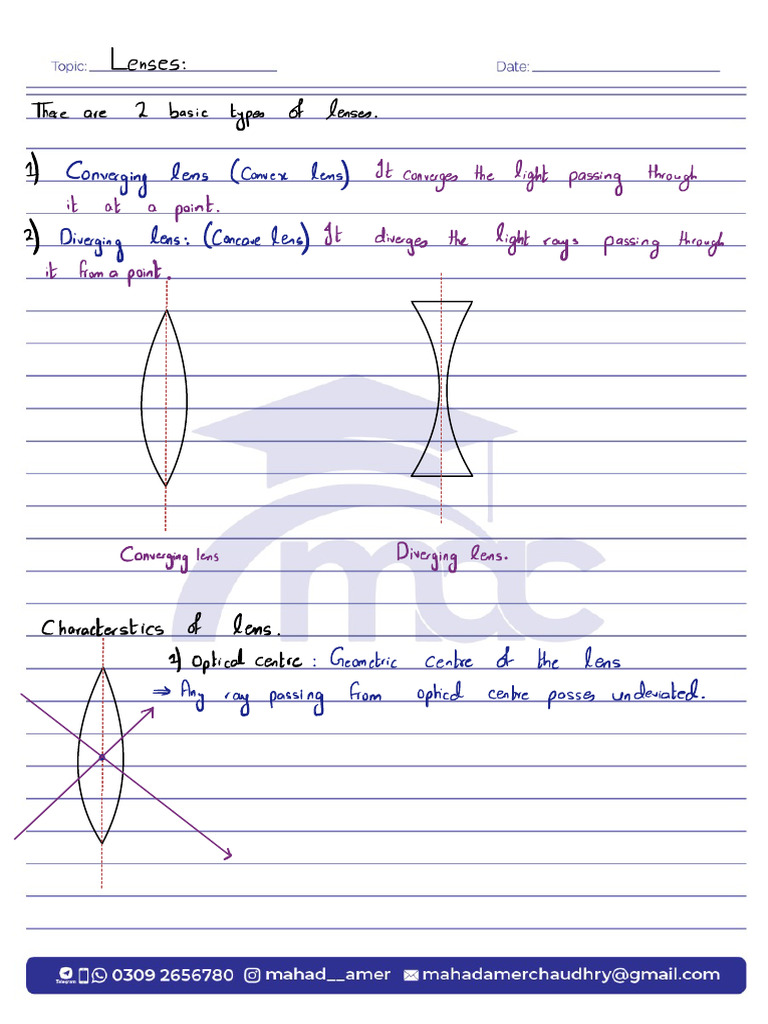 Topic: Lenses:
Date:
There are 2 basic types of lenses.
1) Converging lens (Convex lens) It converges the light passing through
it at a point.
2) Diverging lens: (Concave lens) It diverges the light rays passing through
it from a point.
mac
Converging lens
Diverging lens.
Characterstics of lens.
1) Optical centre: Geometric centre of the lens
⇒ Any ray passing from optical centre passes undeviated.
Telegram 0309 2656780 mahad__amer mahadamerchaudhry@gmail.com